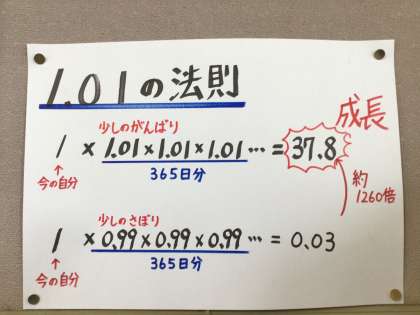 1.01の法則
成長
少しのがんばり
1 × 1.01×1.01×1.01… = 37.8
↑
今の自分
365日分
約
1260倍
少しのさぼり
1 × 0.99×0.99×0.99… = 0.03
↑
今の自分
365日分